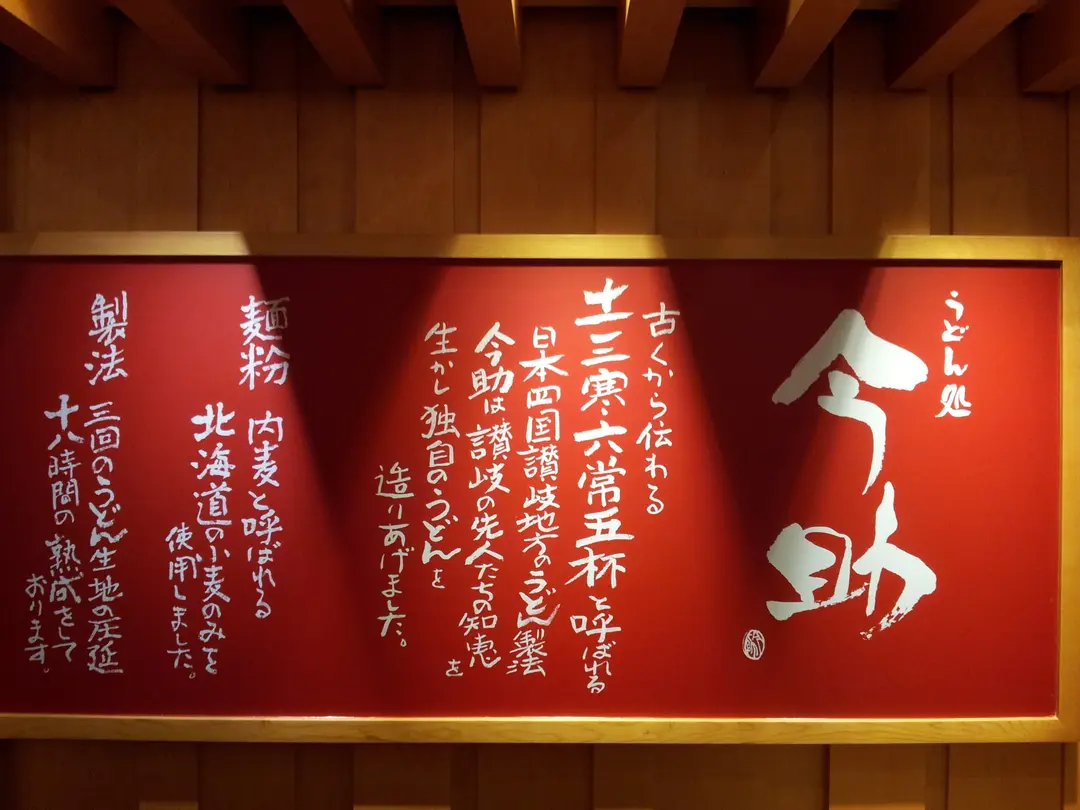 うどん処
今助
古くから伝わる
土三寒六常五杯と呼ばれる
日本四国讃岐地方のうどん製法
今助は讃岐の先人たちの知恵を
生かし独自のうどんを
造りあげました。
麺粉
内麦と呼ばれる
北海道の小麦のみを
使用しました。
製法
三回のうどん生地の圧延
十八時間の熟成をして
おります。